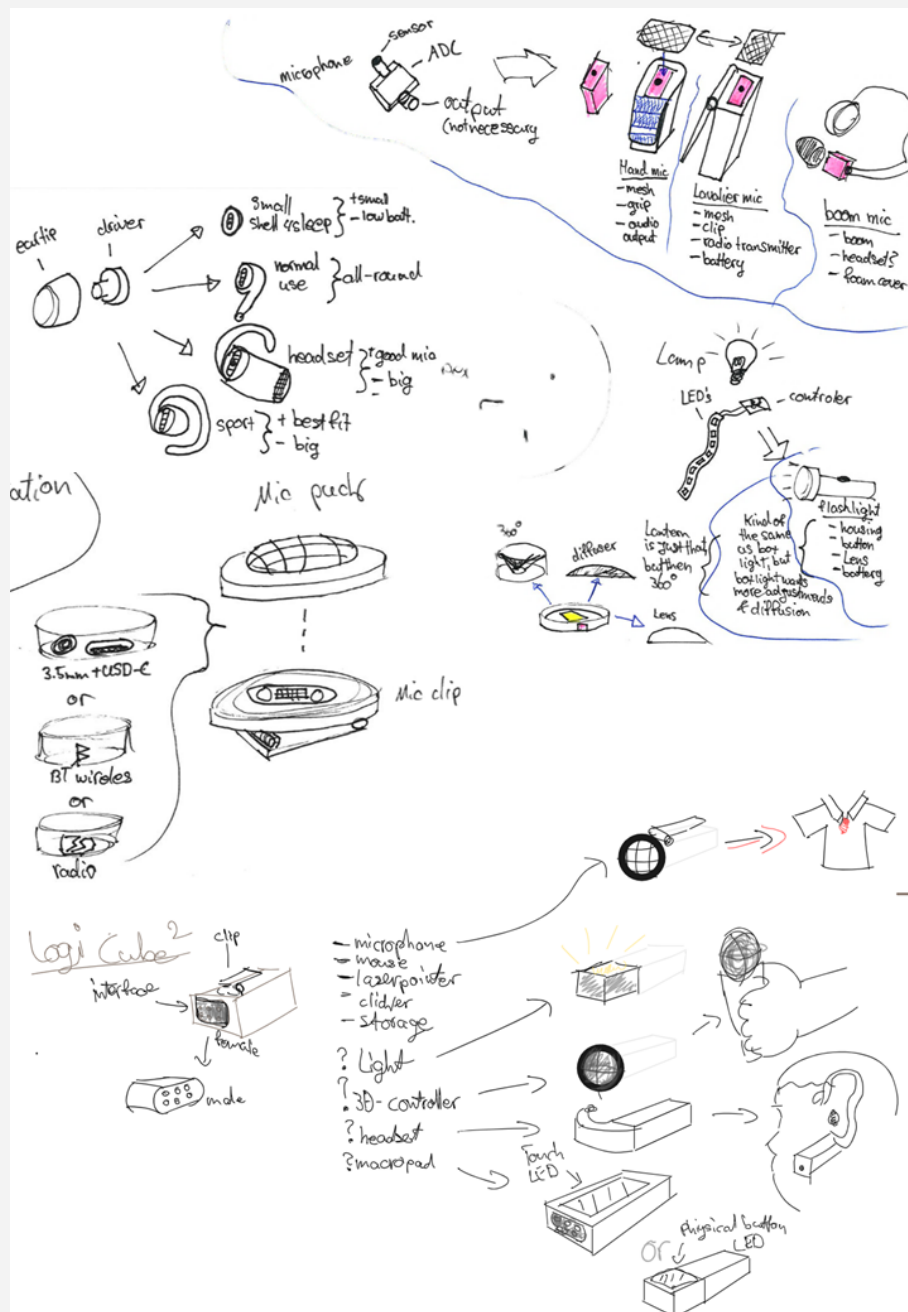 sensor
microphone
ADC
output
(not necessary
Hand mic
- mesh
- grip
- audio
output
Lavalier mic
- mesh
- clip
- radio transmitter
- battery
boom mic
- boom
- headset?
- foam cover
eartip
driver
small
shell 4 sleep
+ small
- low batt.
normal
use
all-round
headset
+ good mic
- big
sport
+ best fit
- big
Lamp
LED's
controler
flashlight
- housing
- button
- Lens
- battery
Kind of
the same
as box
light, but
box light wants
more adjustments
& diffusion
Lantern
is just that
but then
360°
360°
diffuser
Lens
ation
Mic puck
3.5mm + USD-C
or
BT wireles
or
radio
Mic clip
Logi Cube²
clip
interface
female
male
- microphone
- mouse
- laserpointer
- clicker
- storage
? Light
? 3D-controller
? headset
? macropad
Touch
LED
or
Physical button
LED